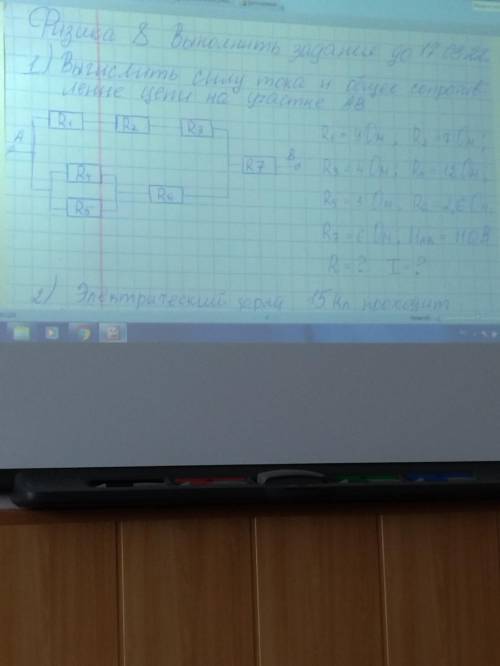 Физика 8 Выполнить задания до 17.03.22.
1) Вычислить силу тока и общее сопротив
ление цепи на участке АВ
A
R1
R2
R3
R4
R5
R6
R7
B
R1 = 9 Ом, R2 = 7 Ом;
R3 = 4 Ом, R4 = 12 Ом,
R5 = 3 Ом, R6 = 2,6 Ом
R7 = 6 Ом, UАВ = 110 В
R = ? I - ?
2) Электрический заряд 15 Кл проходит